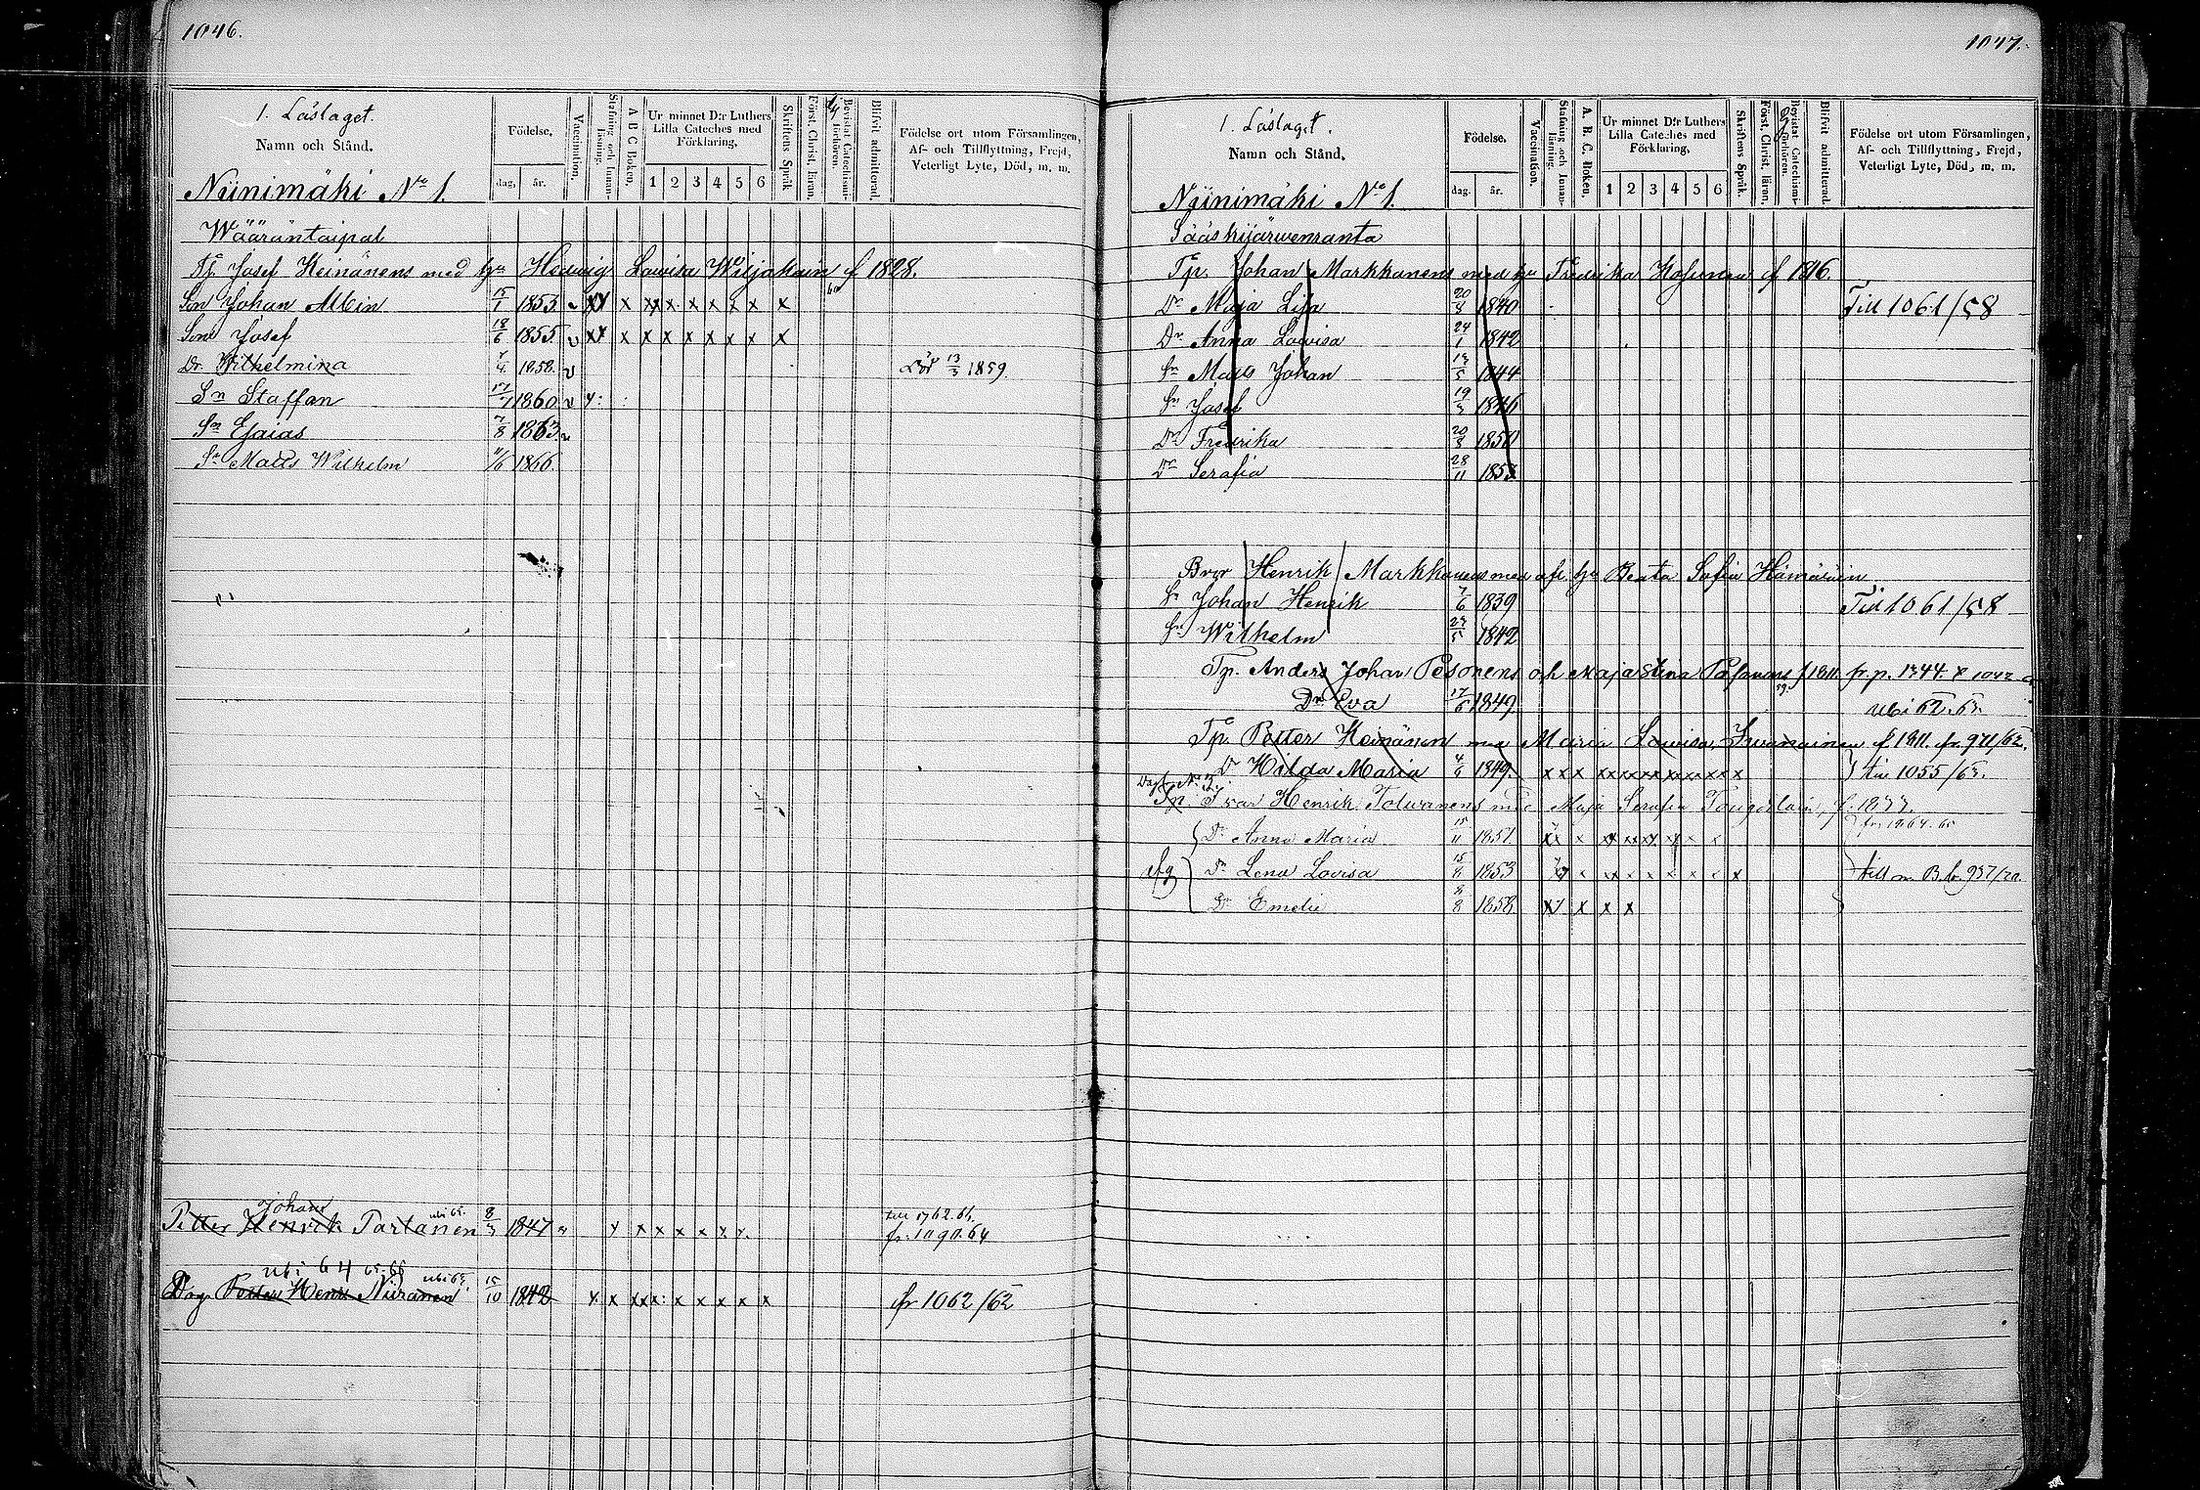 1046.
1. Läslaget.
Namn och Stånd.
Födelse,
dag, år.
Vaccination.
Stafning och Innan-läsning.
A B C Boken.
Ur minnet D:r Luthers Lilla Cateches med Förklaring.
1 2 3 4 5 6
Skriftens Språk.
Först. Christ. läran.
Bevistat Catechismi-förhören.
Blifvit admitterad.
Födelse ort utom Församlingen, Af- och Tillflyttning, Frejd, Veterligt Lyte, Död, m. m.
Niinimäki No 1.
Wääräntaipal
Tp. Josef Keinänens med hu Hedvig Lovisa Wiljakain f 1828.
Son Johan Albin 15/1 1853. v x x x x x x x x x
Son Josef 18/6 1855. v x x x x x x x x x
Dr Wilhelmina 7/4 1858. v Död 13/3 1859
Sn Staffan 17/7 1860 v
Sn Esaias 7/8 1863 v
Sn Matts Wilhelm 11/6 1866.
Johan
Petter Henrik Partanen ubi 65. 8/3 1847 till 1762.64.
fr. 1090.64
ubi 64 65-66
Drg. Petter Henr Niiranen ubi 67 15/10 1842 fr 1062/62
1047.
1. Läslaget.
Namn och Stånd.
Födelse.
dag. år.
Vaccination.
Stafning och Innan-läsning.
A. B. C. Boken.
Ur minnet D:r Luthers Lilla Cateches med Förklaring.
1 2 3 4 5 6
Skriftens Språk.
Först. Christ. läran.
Bevistat Catechismi-förhören.
Blifvit admitterad.
Födelse ort utom Församlingen, Af- och Tillflyttning, Frejd, Veterligt Lyte, Död, m. m.
Niinimäki No 1.
Sääskijärwenranta
Tp. Johan Markkanens med hu Fredrika Kosunen f 1816.
Dr Maja Lisa 20/8 1840 Till 1061/58
Dr Anna Lovisa 24/1 1842
Sn Matts Johan 1844
Sn Josef 1846
Dr Fredrika 20/8 1850
Dr Serafia 28/11 1853
Bror Henrik Markkanens med afl. hu Beata Sofia Hämäläin
Sn Johan Henrik 7/6 1839 Till 1061/58
Sn Wilhelm 27/5 1842
Tp. Anders Johan Pesonens och Maja Stina f 1811. fr. p. 1344.
Dr Eva 17/6 1849. ubi 62.63.
Tp. Petter Keinänen med Maria Lovisa f. 1811. fr. 971/62.
Dr Hilda Maria 4/6 1849. x x x x x x x x x x till 1055/63.
Ivar Henrik Tolwanens med Maja Serafia
Dr Anna Maria 15/11 1851. fr 1064.65
Dr Lena Lovisa 15/8 1853 till n. B. p. 957/70.
Dr Emelie 8/8 1858. x x x x